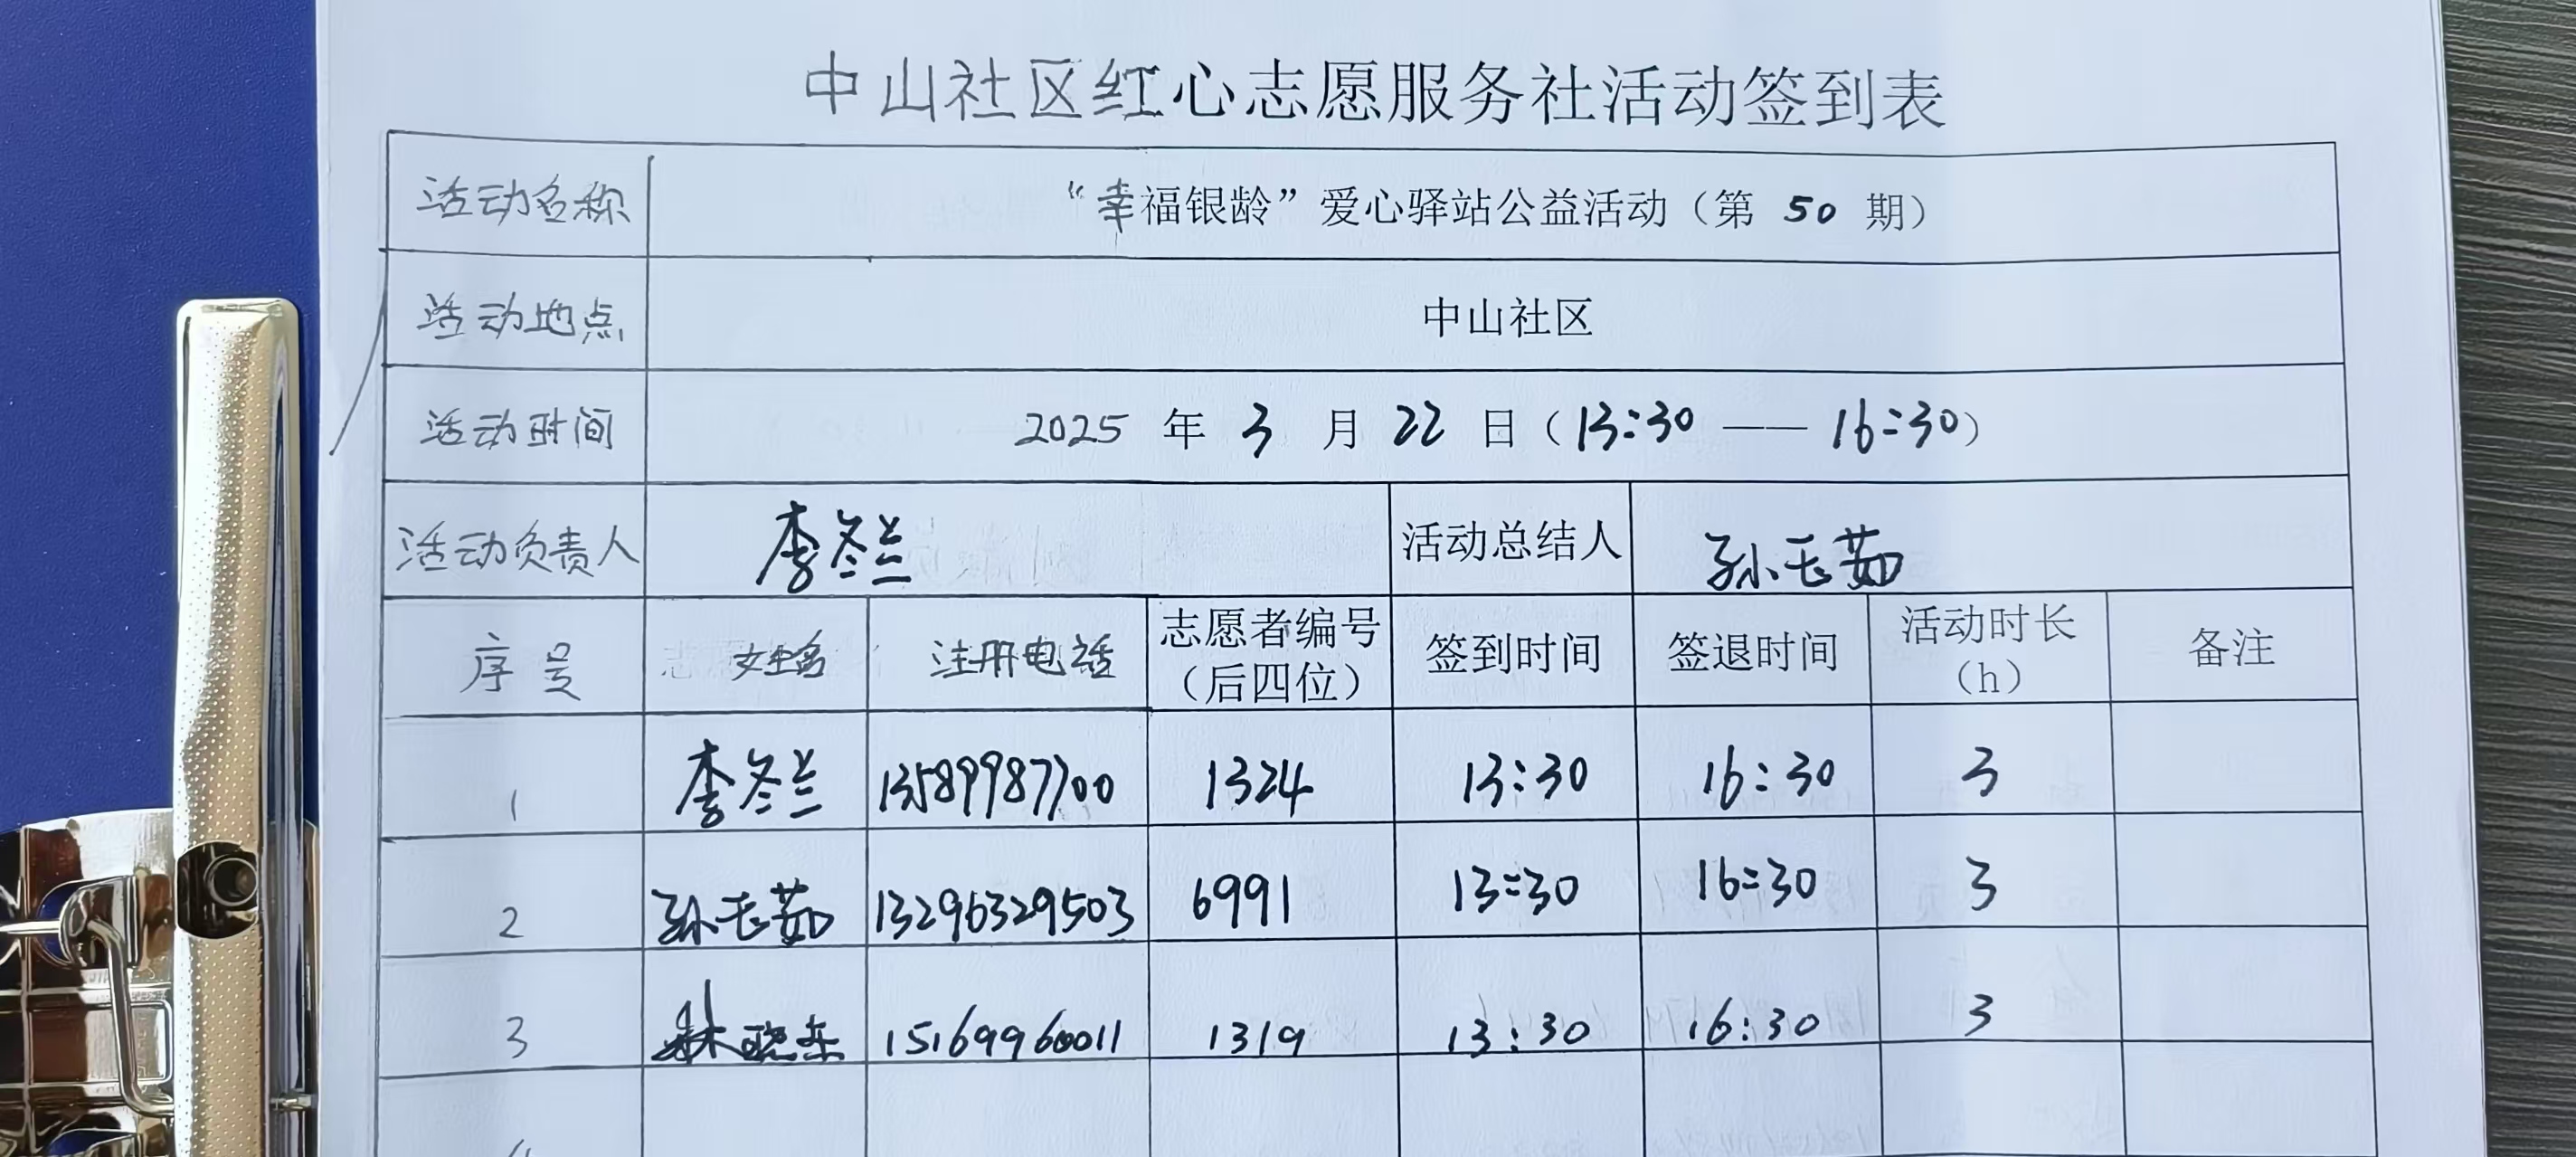 中山社区红心志愿服务社活动签到表
活动名称 “幸福银龄”爱心驿站公益活动（第 50 期）
活动地点 中山社区
活动时间 2025 年 3 月 22 日（13:30 —— 16:30）
活动负责人 李冬兰 活动总结人 孙玉茹
序号 姓名 注册电话 志愿者编号（后四位） 签到时间 签退时间 活动时长（h） 备注
1 李冬兰 13589987700 1324 13:30 16:30 3
2 孙玉茹 13296329503 6991 13:30 16:30 3
3 林晓东 15169960011 1319 13:30 16:30 3